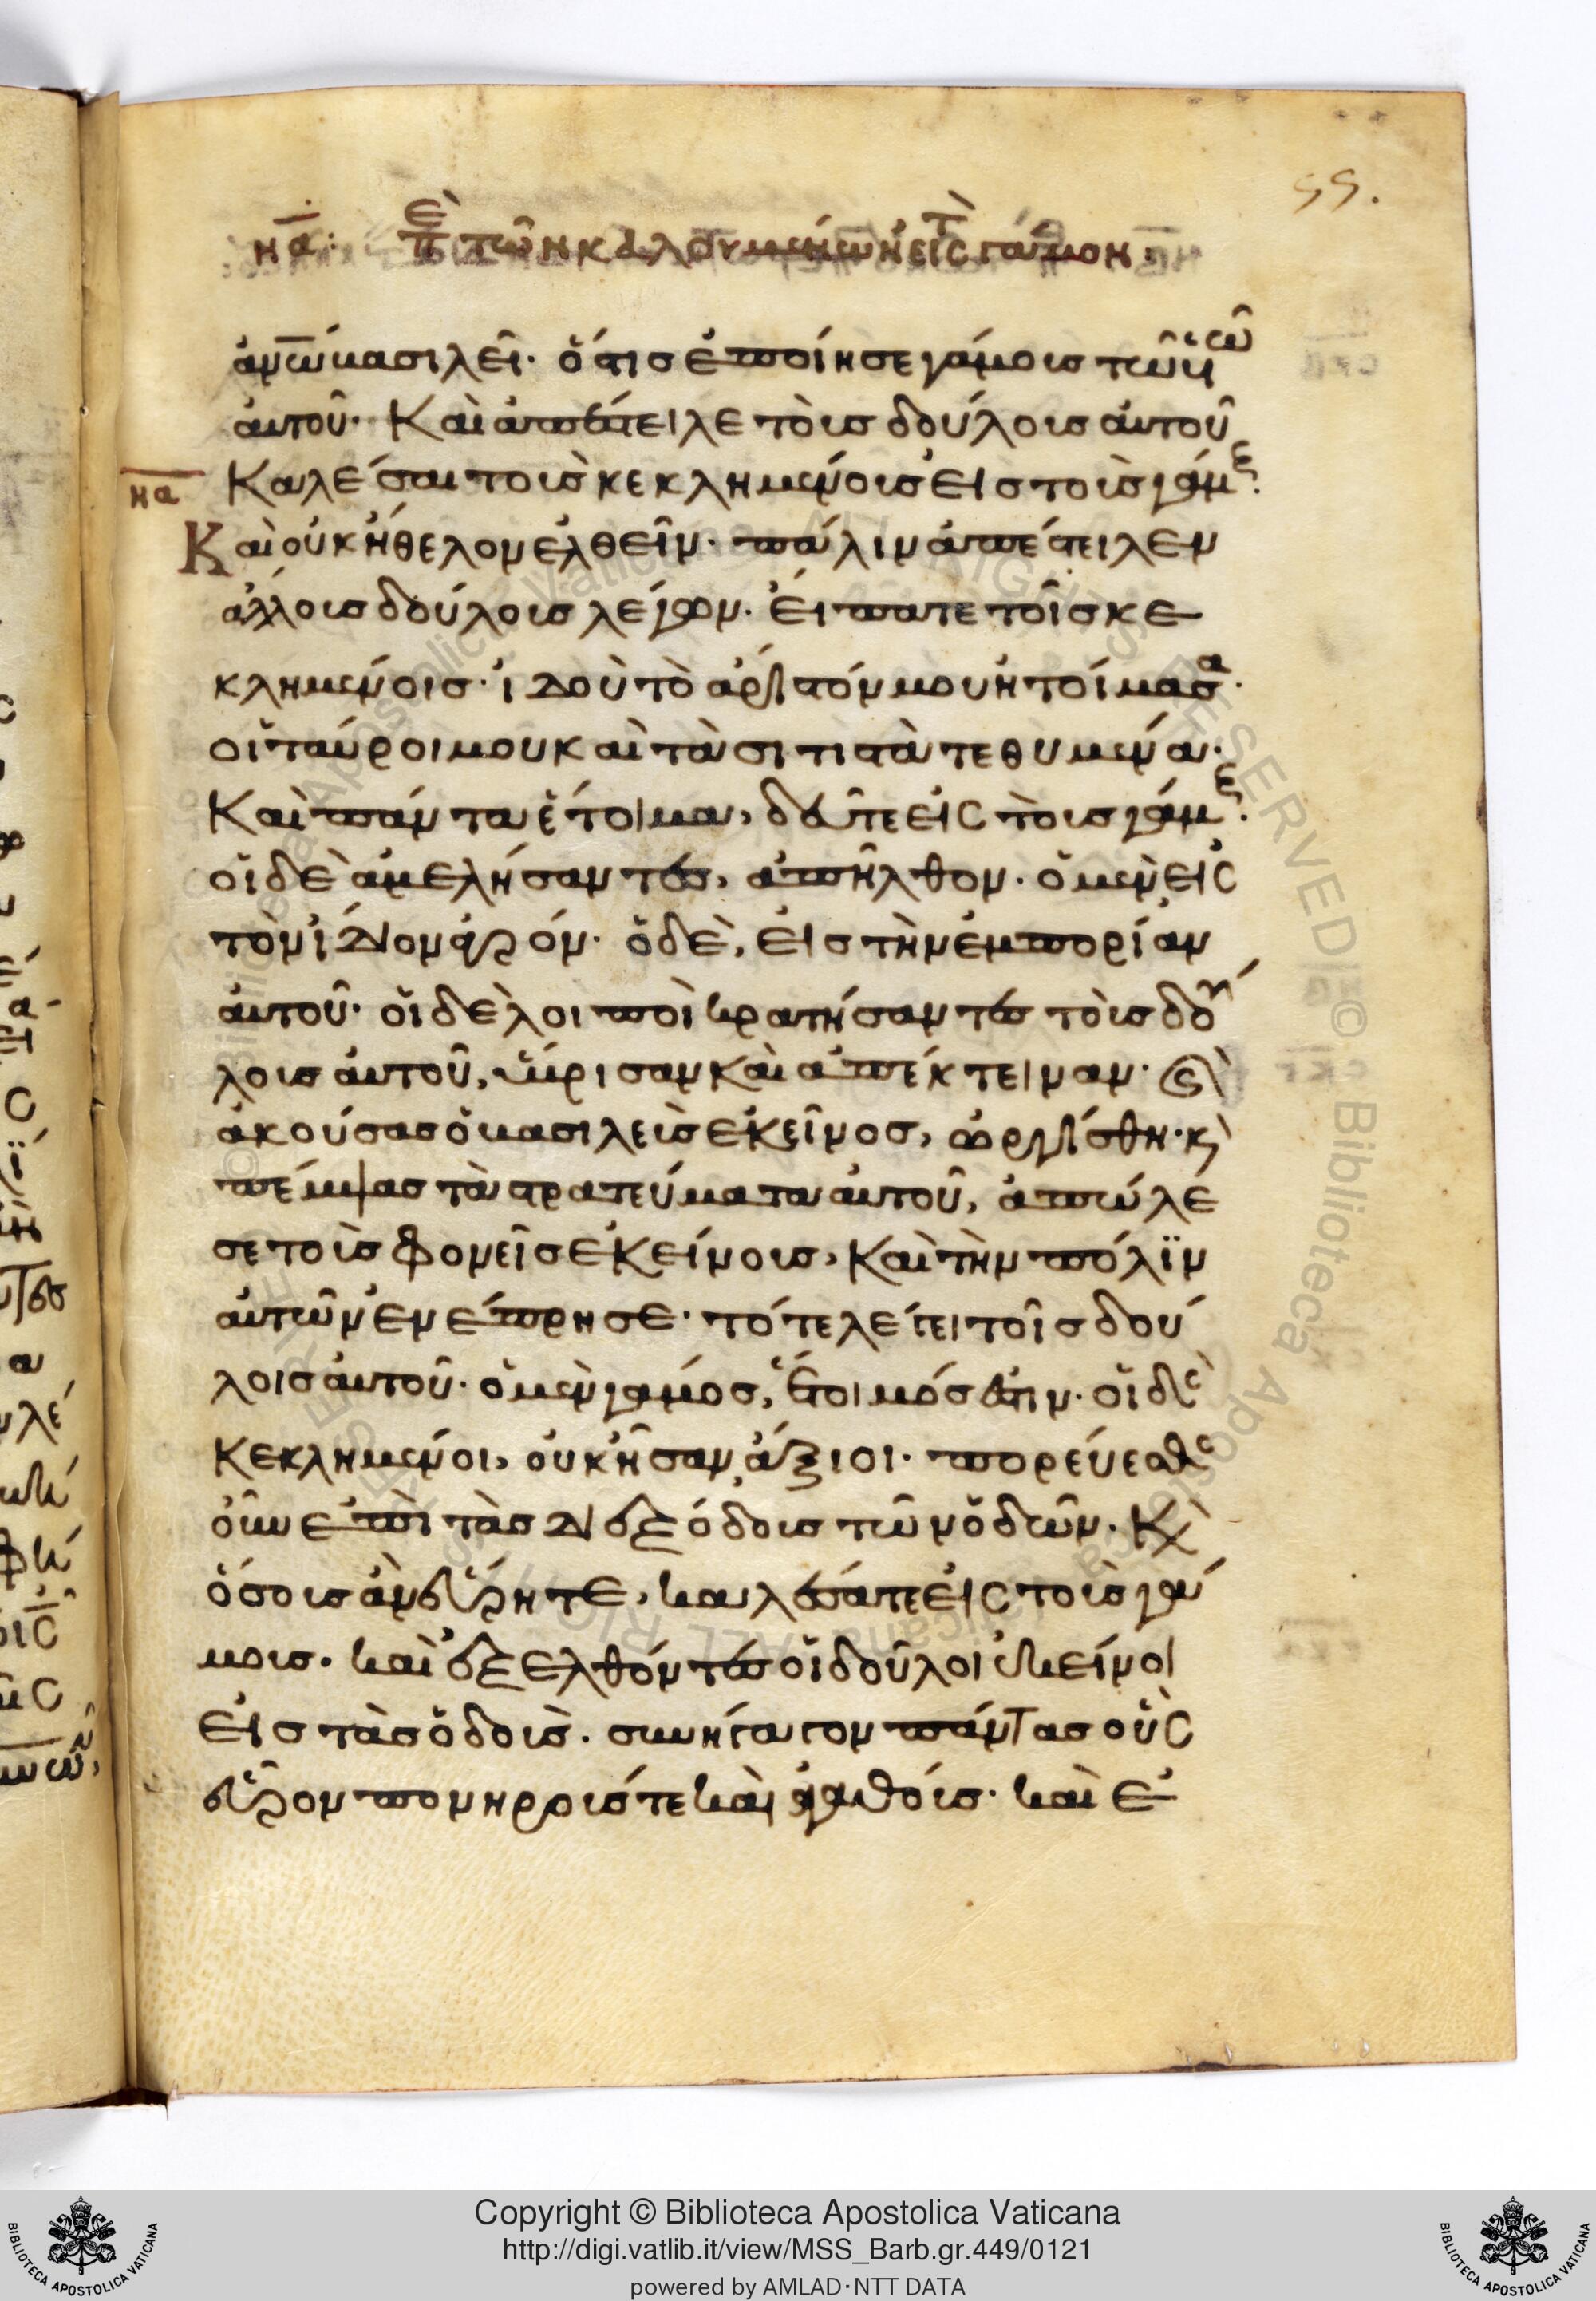 55.
να: Πε τῶν καλουμένων εἰς τὸ γάμον
ἀνω βασιλεῖ· ὅστις ἐποίησε γάμους τῶ υἱῶ
αὐτοῦ· Καὶ ἀπέστειλε τοὺς δούλους αὐτοῦ
να Καλέσαι τοὺς κεκλημένους εἰς τοὺς γάμ(ους)·
Καὶ οὐκ ἤθελον ἐλθεῖν· πάλιν ἀπέστειλεν
ἄλλους δούλους λέγων· εἴπατε τοῖς κε
κλημένοις· ἰδοὺ τὸ ἄριστόν μου ἡτοίμασα·
οἱ ταῦροι μου καὶ τὰ σιτιστὰ τεθυμένα·
Καὶ πάντα ἕτοιμα, δεῦτε εἰς τοὺς γάμ(ους)·
οἱ δὲ ἀμελήσαντες, ἀπῆλθον· ὁ μὲν εἰς
τὸν ἴδιον ἀγρόν· ὁ δὲ, εἰς τὴν ἐμπορίαν
αὐτοῦ· οἱ δὲ λοιποὶ κρατήσαντες τοὺς δού
λους αὐτοῦ, ὕβρισαν καὶ ἀπέκτειναν· (καὶ)
ἀκούσας ὁ βασιλεὺς ἐκεῖνος, ὠργίσθη· κ(αὶ)
πέμψας τὰ στρατεύματα αὐτοῦ, ἀπώλε
σε τοὺς φονεῖς ἐκείνους, Καὶ τὴν πόλϊν
αὐτῶν ἐνέπρησε· τότε λέγει τοῖς δού
λοις αὐτοῦ· ὁ μὲν γάμος, ἕτοιμός ἐστιν· οἱ δὲ
Κεκλημένοι, οὐκ ἦσαν ἄξιοι· πορεύεσθε
οὖν ἐπὶ τὰς διεξόδους τῶν ὁδῶν· Κ(αὶ)
ὅσους ἂν εὕρητε, καλέσατε εἰς τοὺς γά
μους· καὶ ἐξελθόντες οἱ δοῦλοι ἐκεῖνοι
εἰς τὰς ὁδοὺς· συνήγαγον πάντας οὓς
εὗρον πονηρούς τε καὶ ἀγαθούς· καὶ ἐ
Copyright © Biblioteca Apostolica Vaticana
http://digi.vatlib.it/view/MSS_Barb.gr.449/0121
powered by AMLAD·NTT DATA
BIBLIOTECA APOSTOLICA VATICANA
BIBLIOTECA APOSTOLICA VATICANA